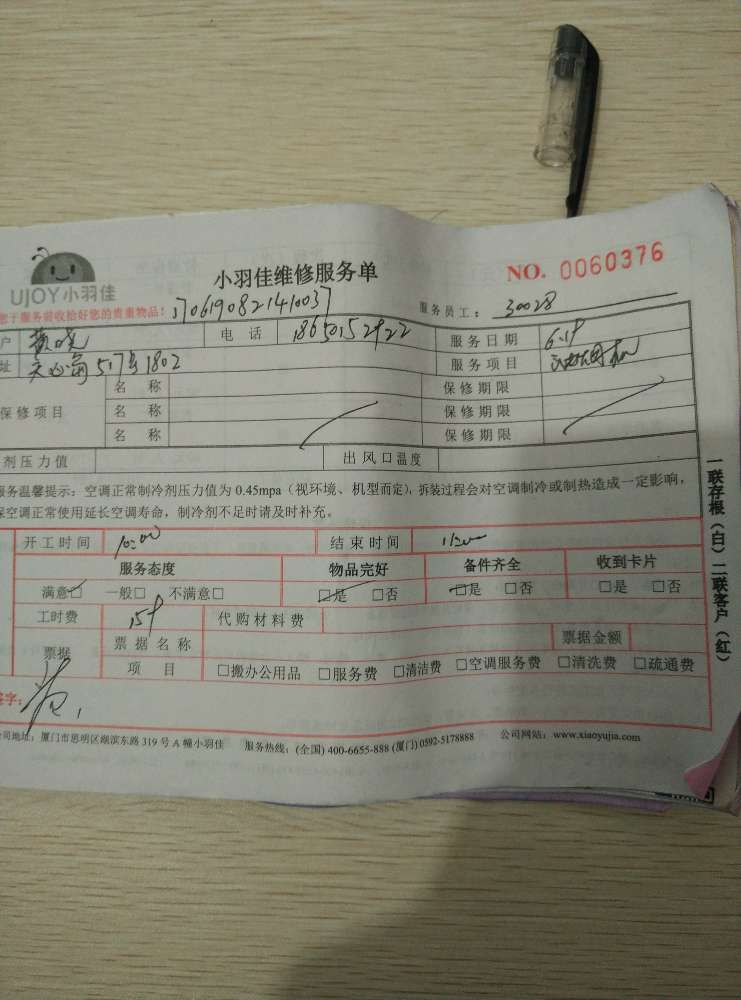 UJOY小羽佳
小羽佳维修服务单
NO. 0060376
您于服务前收拾好您的贵重物品!
1706190821410037
服务员工: 30028
户 电话 18650152922 服务日期 6.19
址 517号1802 服务项目
保修项目 名称 保修期限
名称 保修期限
名称 保修期限
剂压力值 出风口温度
服务温馨提示:空调正常制冷剂压力值为0.45mpa(视环境、机型而定),拆装过程会对空调制冷或制热造成一定影响,
保空调正常使用延长空调寿命,制冷剂不足时请及时补充。
开工时间 10:00 结束时间 11:00
服务态度 物品完好 备件齐全 收到卡片
满意□ 一般□ 不满意□ □是 □否 □是 □否 □是 □否
工时费 159 代购材料费
票据 票据名称 票据金额
项目 □搬办公用品 □服务费 □清洁费 □空调服务费 □清洗费 □疏通费
签字:
公司地址:厦门市思明区湖滨东路319号A幢小羽佳 服务热线:(全国)400-6655-888 (厦门)0592-5178888 公司网站:www.xiaoyujia.com
一联存根(白)二联客户(红)